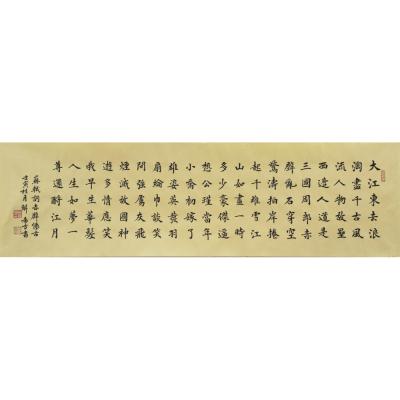 大江東去浪
淘盡千古風
流人物故壘
西邊人道是
三國周郎赤
壁亂石穿空
驚濤拍岸捲
起千堆雪江
山如畫一時
多少豪傑遙
想公瑾當年
小喬初嫁了
雄姿英發羽
扇綸巾談笑
間強虜灰飛
煙滅故國神
遊多情應笑
我早生華髮
人生如夢一
尊還酹江月
蘇軾詞赤壁懷古
壬寅桂月解書